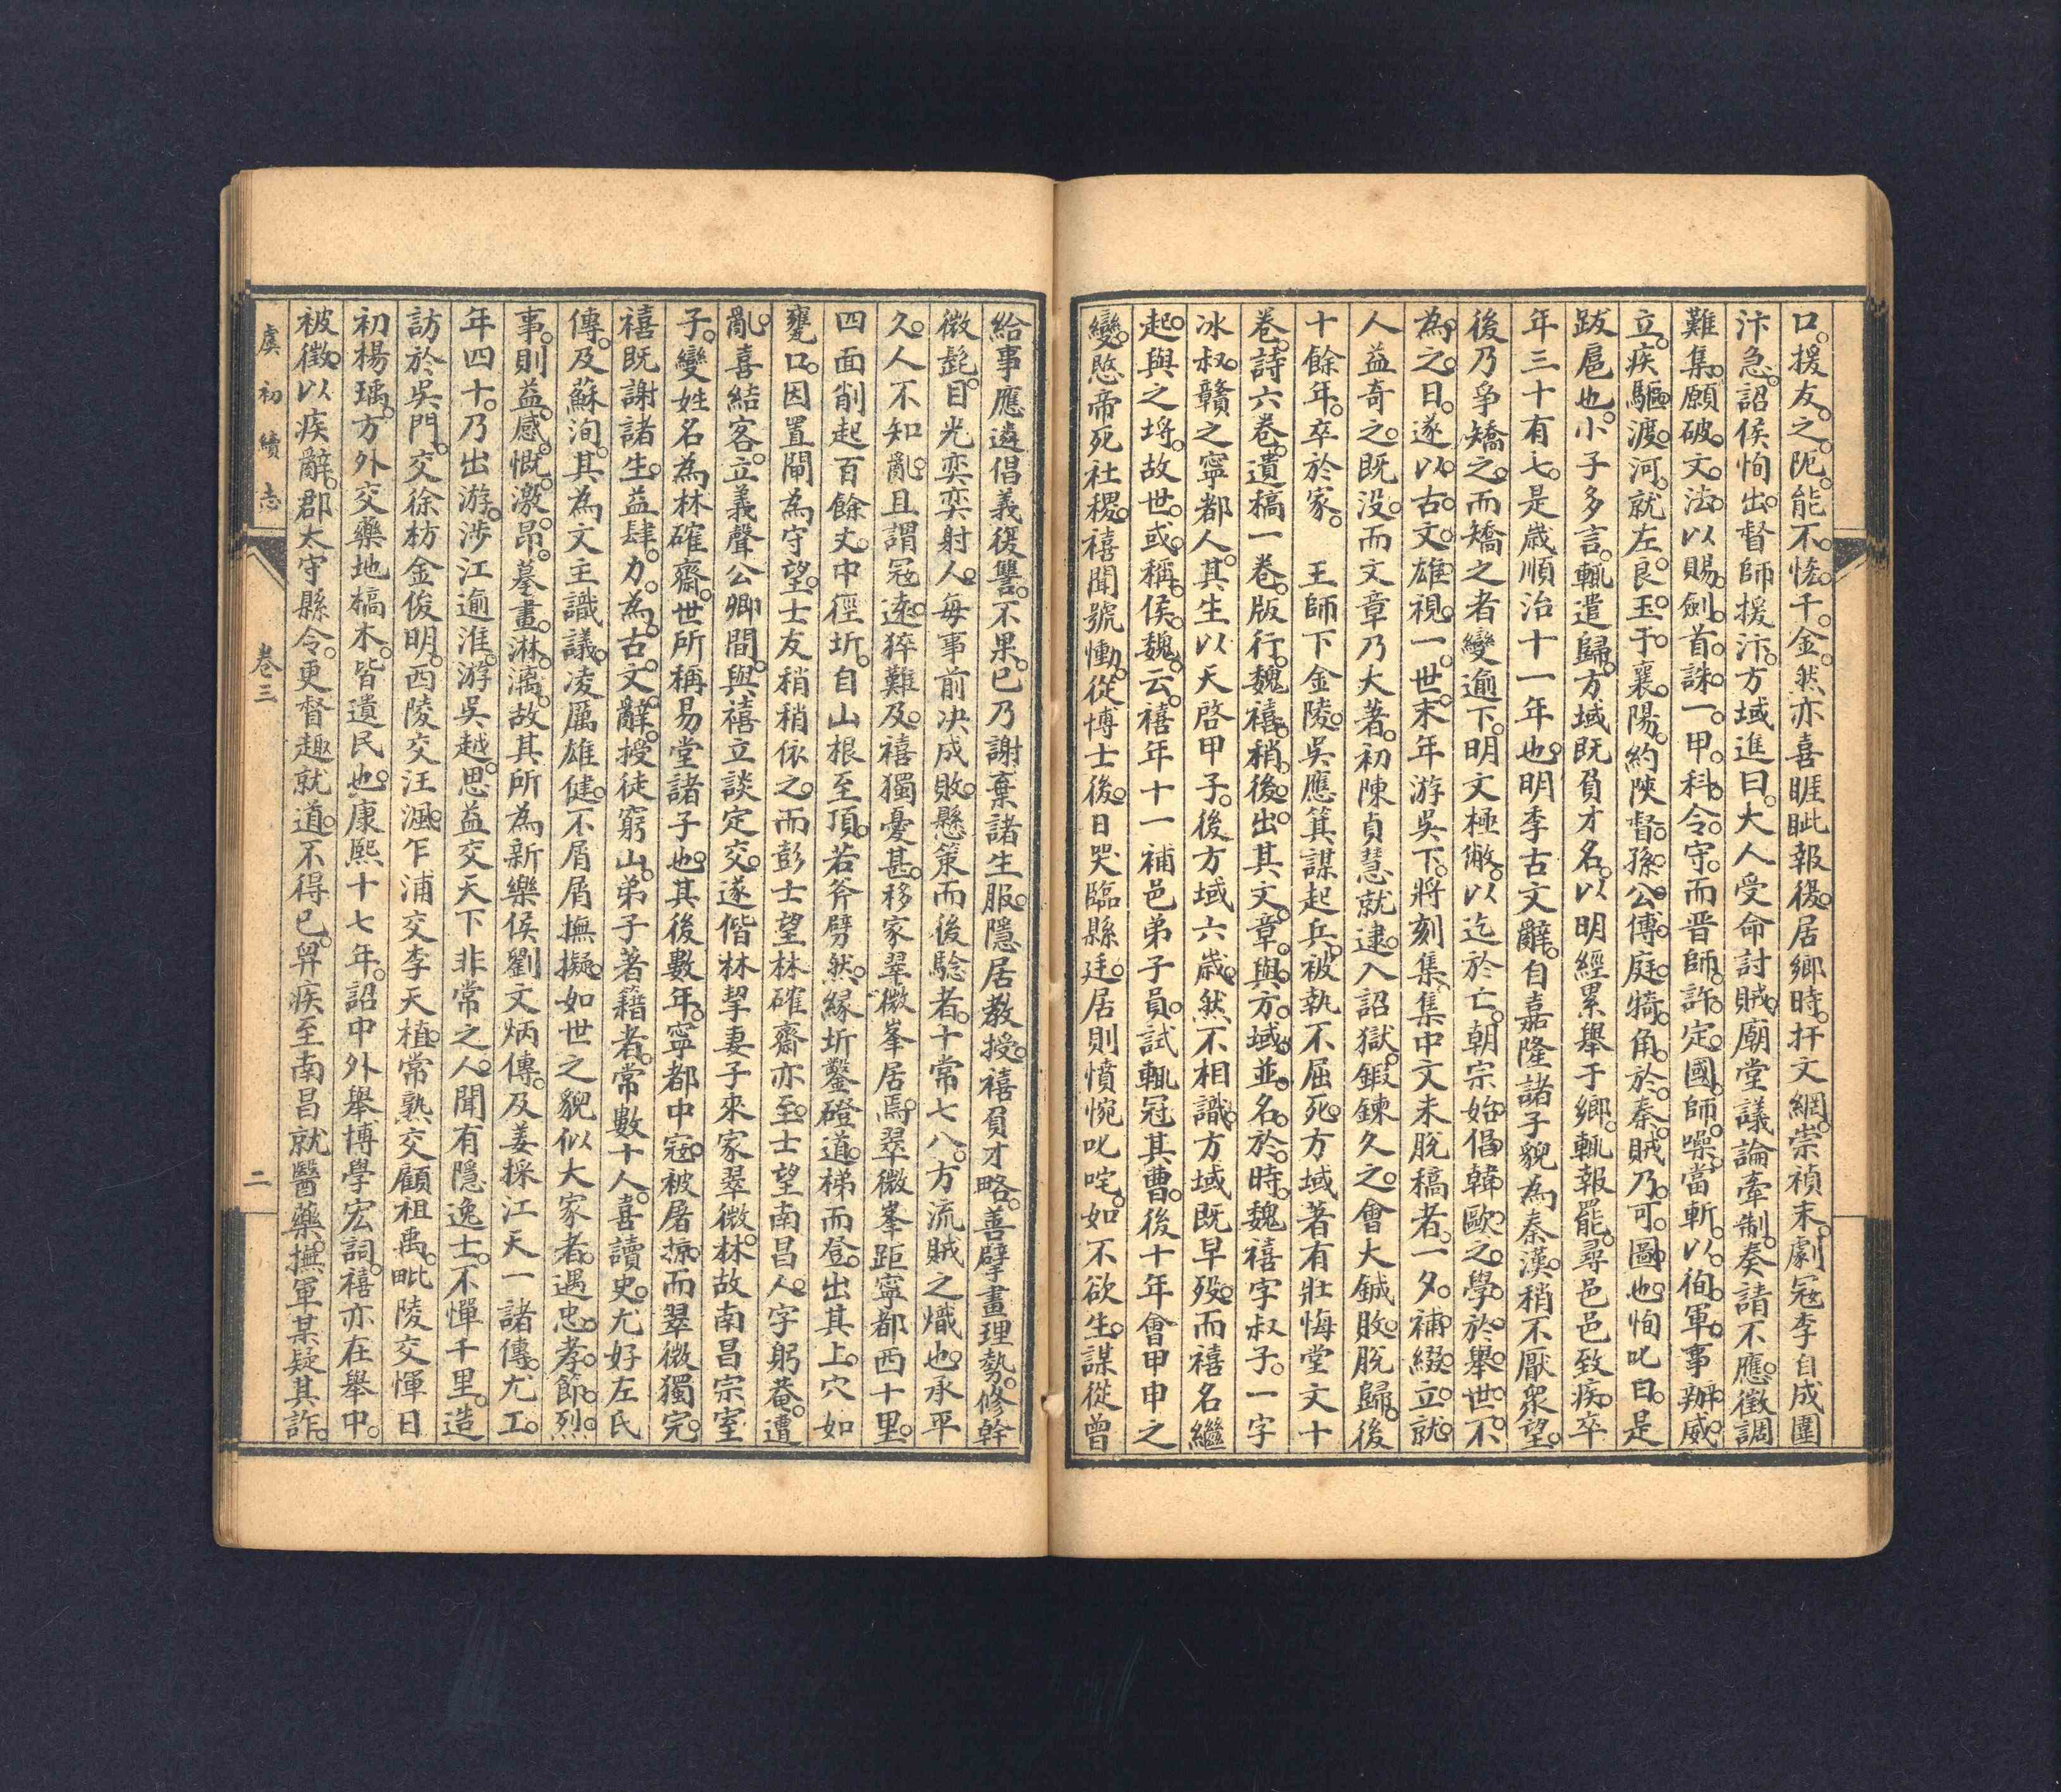 口援友之阨能不恡千金然亦喜睚眦報復居鄉時扞文網崇禎末劇寇李自成圍
汴急詔侯恂出督師援汴方域進曰大人受命討賊廟堂議論牽制奏請不應徵調
難集願破文法以賜劍首誅一甲科令守而晉師許定國師噪當斬以徇軍事辦威
立疾驅渡河就左良玉于襄陽約陝督孫公傅庭犄角於秦賊乃可圖也恂叱曰是
跋扈也小子多言輒遣歸方域既負才名以明經累舉于鄉輒報罷尋邑邑致疾卒
年三十有七是歲順治十一年也明季古文辭自嘉隆諸子貌為秦漢稍不厭衆望
後乃爭矯之而矯之者變逾下明文極敝以迄於亡朝宗始倡韓歐之學於舉世不
為之日遂以古文雄視一世末年游吳下將刻集集中文未脫稿者一夕補綴立就
人益奇之既没而文章乃大著初陳貞慧就逮入詔獄鍛鍊久之會大鋮敗脫歸後
十餘年卒於家　王師下金陵吳應箕謀起兵被執不屈死方域著有壯悔堂文十
卷詩六卷遺稿一卷版行魏禧稍後出其文章與方域並名於時魏禧字叔子一字
冰叔贛之寧都人其生以天啓甲子後方域六歲然不相識方域既早殁而禧名繼
起與之埒故世或稱侯魏云禧年十一補邑弟子員試輒冠其曹後十年會甲申之
變愍帝死社稷禧聞號慟從博士後日哭臨縣廷居則憤惋叱咤如不欲生謀從曾
給事應遴倡義復讐不果已乃謝棄諸生服隱居教授禧負才略善擘畫理勢修幹
微髭目光奕奕射人每事前决成敗懸策而後驗者十常七八方流賊之熾也承平
久人不知亂且謂寇遠猝難及禧獨憂甚移家翠微峯居焉翠微峯距寧都西十里
四面削起百餘丈中徑坼自山根至頂若斧劈然緣坼鑿磴道梯而登出其上穴如
甕口因置閘為守望士友稍稍依之而彭士望林確齋亦至士望南昌人字躬菴遭
亂喜結客立義聲公卿間與禧立談定交遂偕林挈妻子來家翠微林故南昌宗室
子變姓名為林確齋世所稱易堂諸子也其後數年寧都中寇被屠掠而翠微獨完
禧既謝諸生益肆力為古文辭授徒窮山弟子著籍者常數十人喜讀史尤好左氏
傳及蘇洵其為文主識議凌厲雄健不屑屑撫擬如世之貌似大家者遇忠孝節烈
事則益感慨激昂摹畫淋漓故其所為新樂侯劉文炳傳及姜採江天一諸傳尤工
年四十乃出游涉江逾淮游吳越思益交天下非常之人聞有隱逸士不憚千里造
訪於吳門交徐枋金俊明西陵交汪渢乍浦交李天植常熟交顧祖禹毗陵交惲日
初楊瑀方外交藥地槁木皆遺民也康熙十七年詔中外舉博學宏詞禧亦在舉中
被徵以疾辭郡太守縣令更督趣就道不得已舁疾至南昌就醫藥撫軍某疑其詐
虞初續志　卷三　二